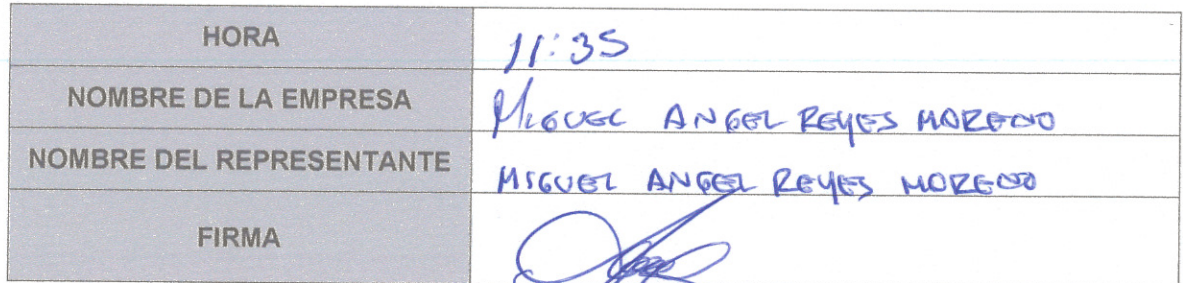 HORA 11:35
NOMBRE DE LA EMPRESA MIGUEL ANGEL REYES MORENO
NOMBRE DEL REPRESENTANTE MIGUEL ANGEL REYES MORENO
FIRMA